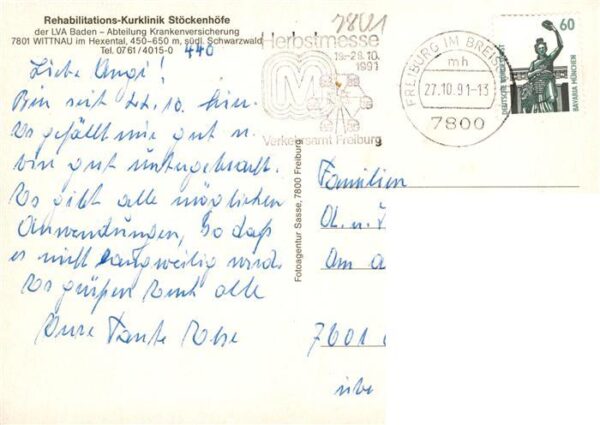 Rehabilitations-Kurklinik Stöckenhöfe
der LVA Baden – Abteilung Krankenversicherung
7801 WITTNAU im Hexental, 450–650 m, südl. Schwarzwald
Tel. 0761/4015-0 440
Liebe Angi!
Bin seit 22.10. hier.
Es gefällt mir gut u.
bin gut untergebracht.
Es gibt alle möglichen
Anwendungen, so daß
es nicht langweilig wird.
Es grüßen Euch alle
Eure Tante Rose
7801
Herbstmesse
19.-28.10.
1991
M
Verkehrsamt Freiburg
FREIBURG IM BREIS
mh
27.10.91-13
7800
60
DEUTSCHE BUNDESPOST
BAVARIA MÜNCHEN
Fotoagentur Sasse, 7800 Freiburg
Familien
A. u.
Am
7601